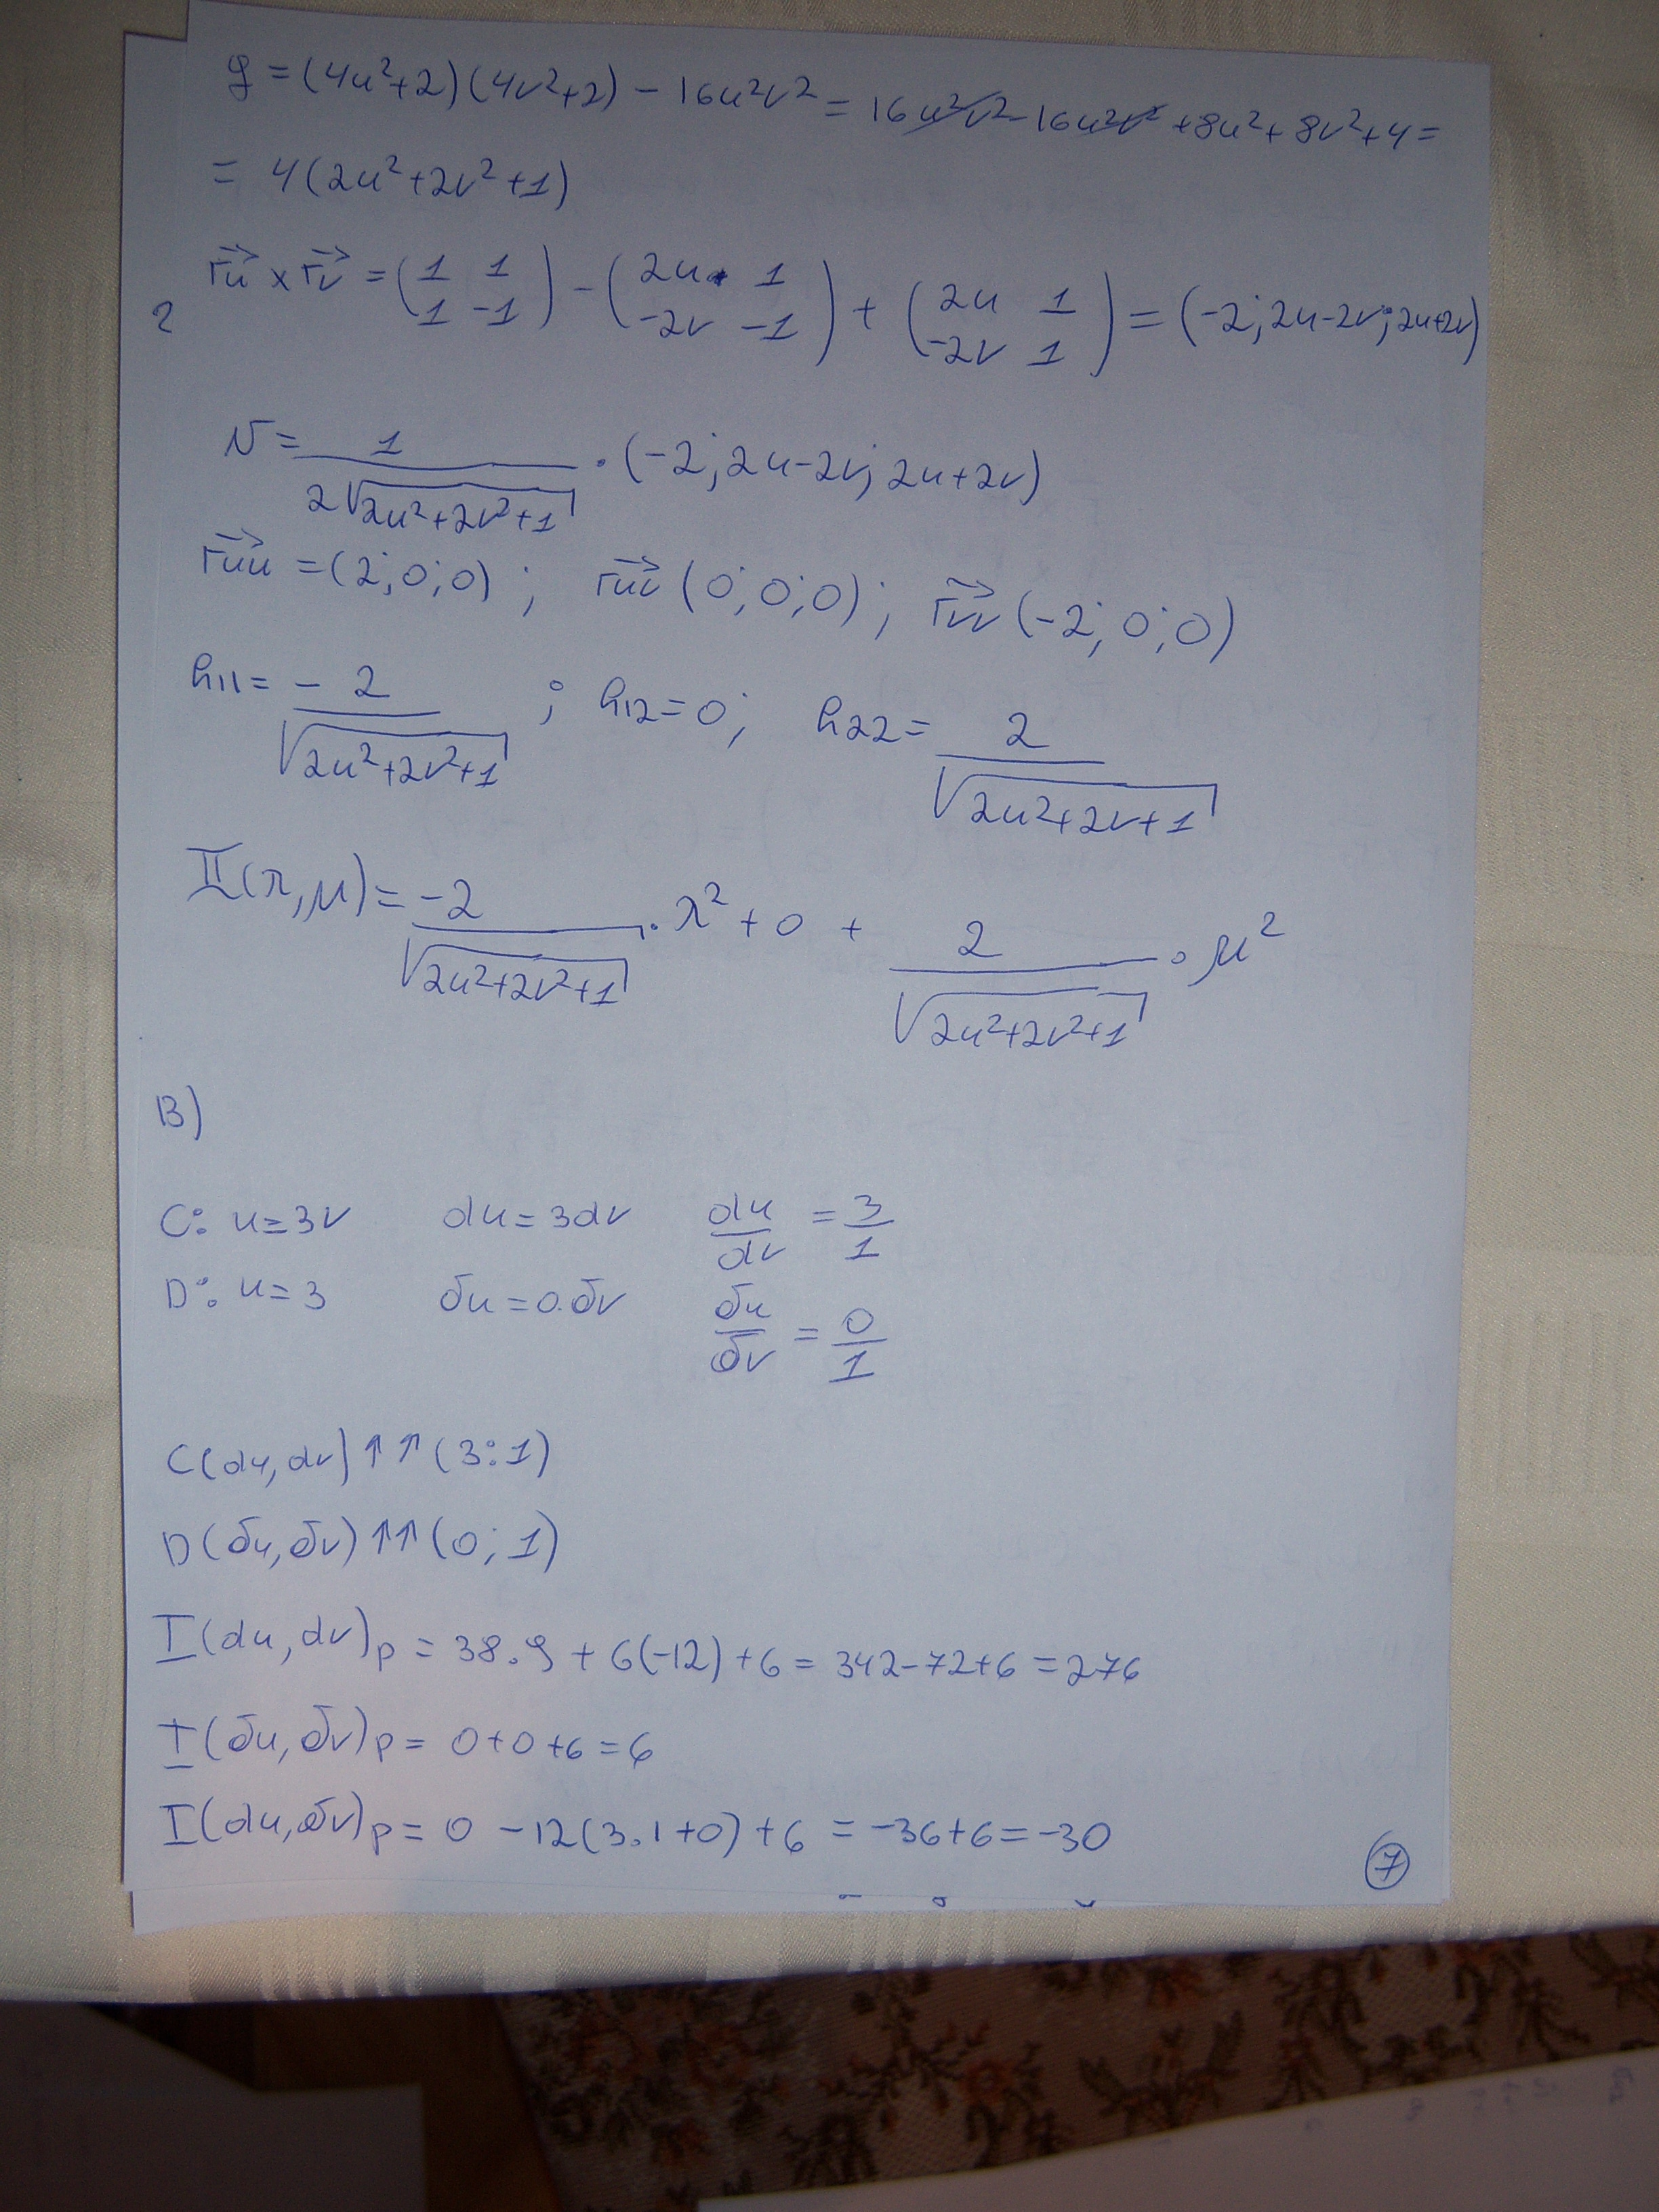 g = (4u²+2)(4v²+2) - 16u²v² = 16u²v² - 16u²v² + 8u² + 8v² + 4 =
= 4(2u²+2v²+1)
2 r⃗u × r⃗v = (1 1 / 1 -1) - (2u 1 / -2v -1) + (2u 1 / -2v 1) = (-2; 2u-2v; 2u+2v)
N = 1 / 2√(2u²+2v²+1) · (-2; 2u-2v; 2u+2v)
r⃗uu = (2;0;0) ; r⃗uv (0;0;0) ; r⃗vv (-2;0;0)
h11 = -2 / √(2u²+2v²+1) ; h12=0; h22 = 2 / √(2u²+2v+1)
II(λ,μ) = -2 / √(2u²+2v²+1) · λ² + 0 + 2 / √(2u²+2v²+1) · μ²
B)
C: u=3v du=3dv du/dv = 3/1
D: u=3 δu=0.δv δu/δv = 0/1
C(du,dv) ↑↑ (3:1)
D(δu,δv) ↑↑ (0;1)
I(du,dv)p = 38.9 + 6(-12) + 6 = 342-72+6 = 276
I(δu,δv)p = 0+0+6 = 6
I(du,δv)p = 0 -12(3.1+0) + 6 = -36+6 = -30
7